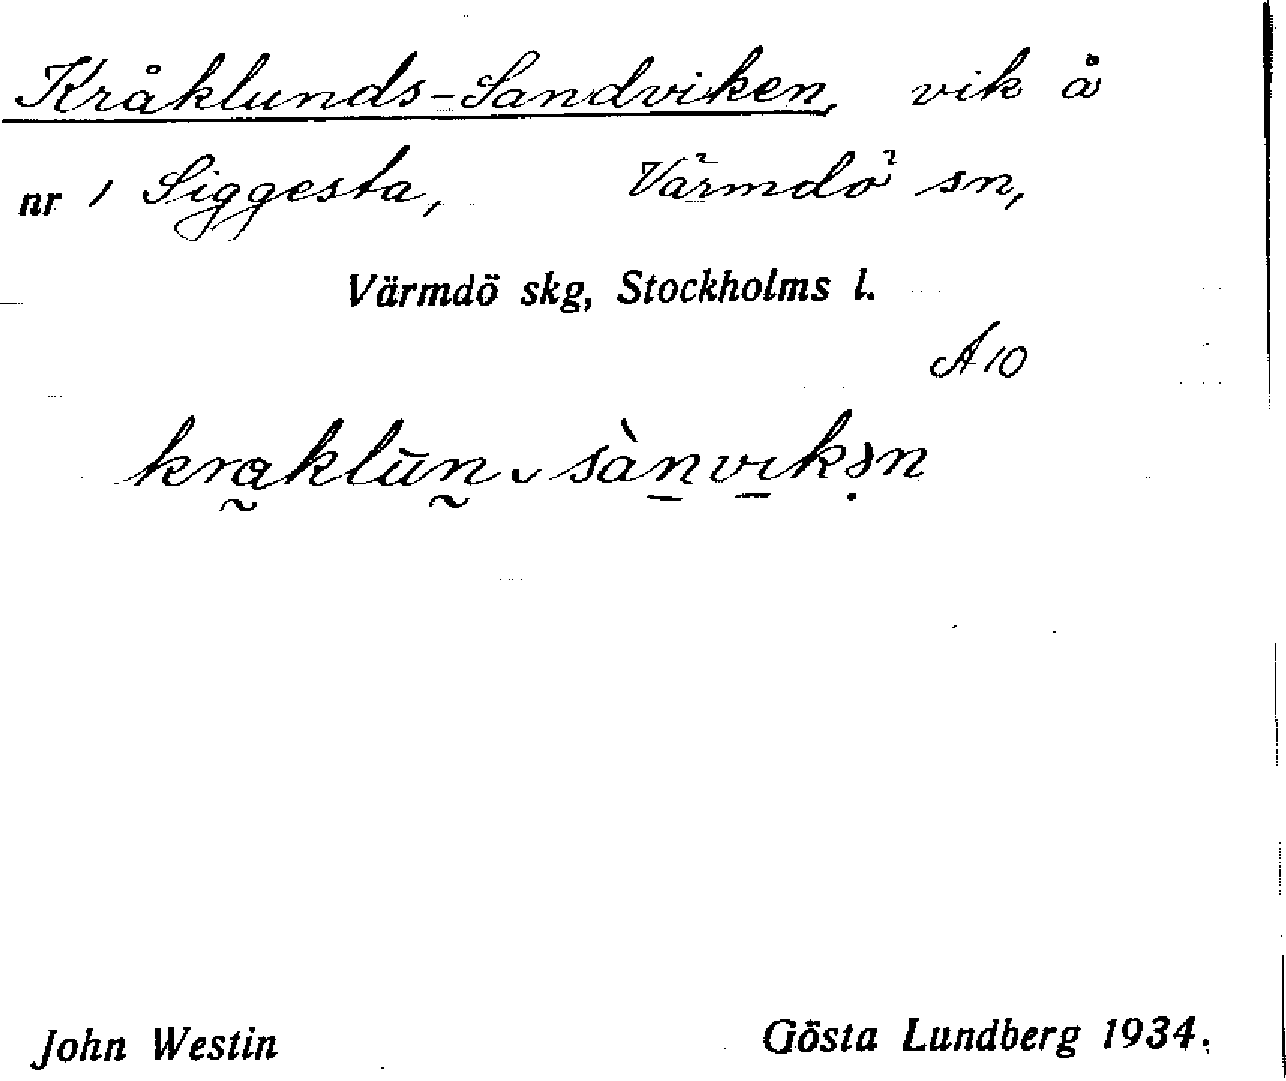 Kråklunds-Sandviken, vik å
nr 1 Siggesta, Värmdö sn,
Värmdö skg, Stockholms l.
A 10
John Westin
Gösta Lundberg 1934.